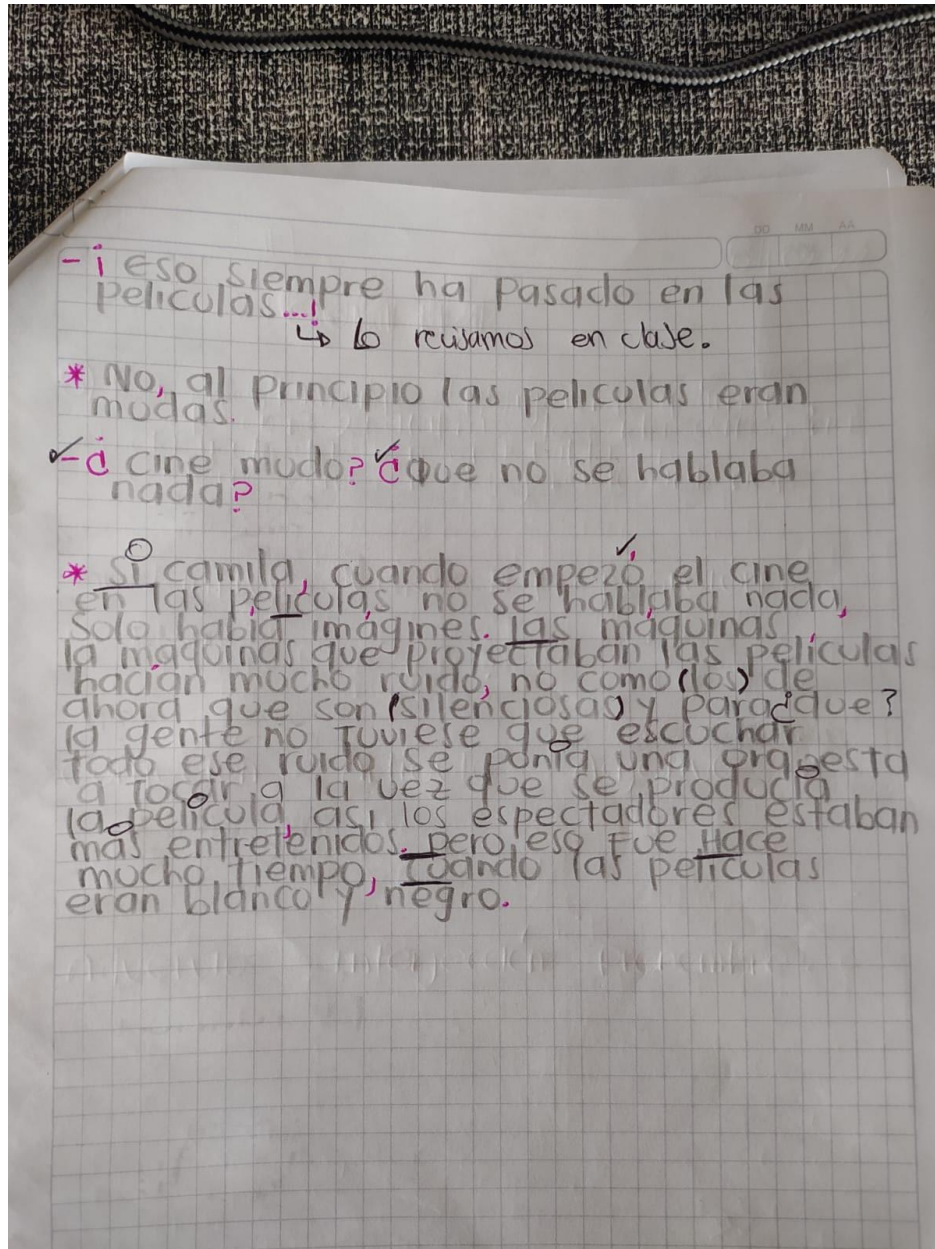 DD MM AA
- ¡ eso siempre ha pasado en las
peliculas...!
↳ lo revisamos en clase.
* No, al principio las peliculas eran
mudas.
- ¿ cine mudo? ¿que no se hablaba
nada?
* Si camila, cuando empezó el cine
en las peliculas no se hablaba nada,
Solo había imágines. las máquinas
la máquinas que proyectaban las películas
hacían mucho ruido, no como (los) de
ahora que son (silenciosas) y para¿que?
la gente no tuviese que escuchar
todo ese ruido se ponía una orquesta
a tocar a la vez que se producía
la película, así los espectadores estaban
mas entretenidos. pero eso fue Hace
mucho tiempo, cuando las películas
eran blanco y negro.